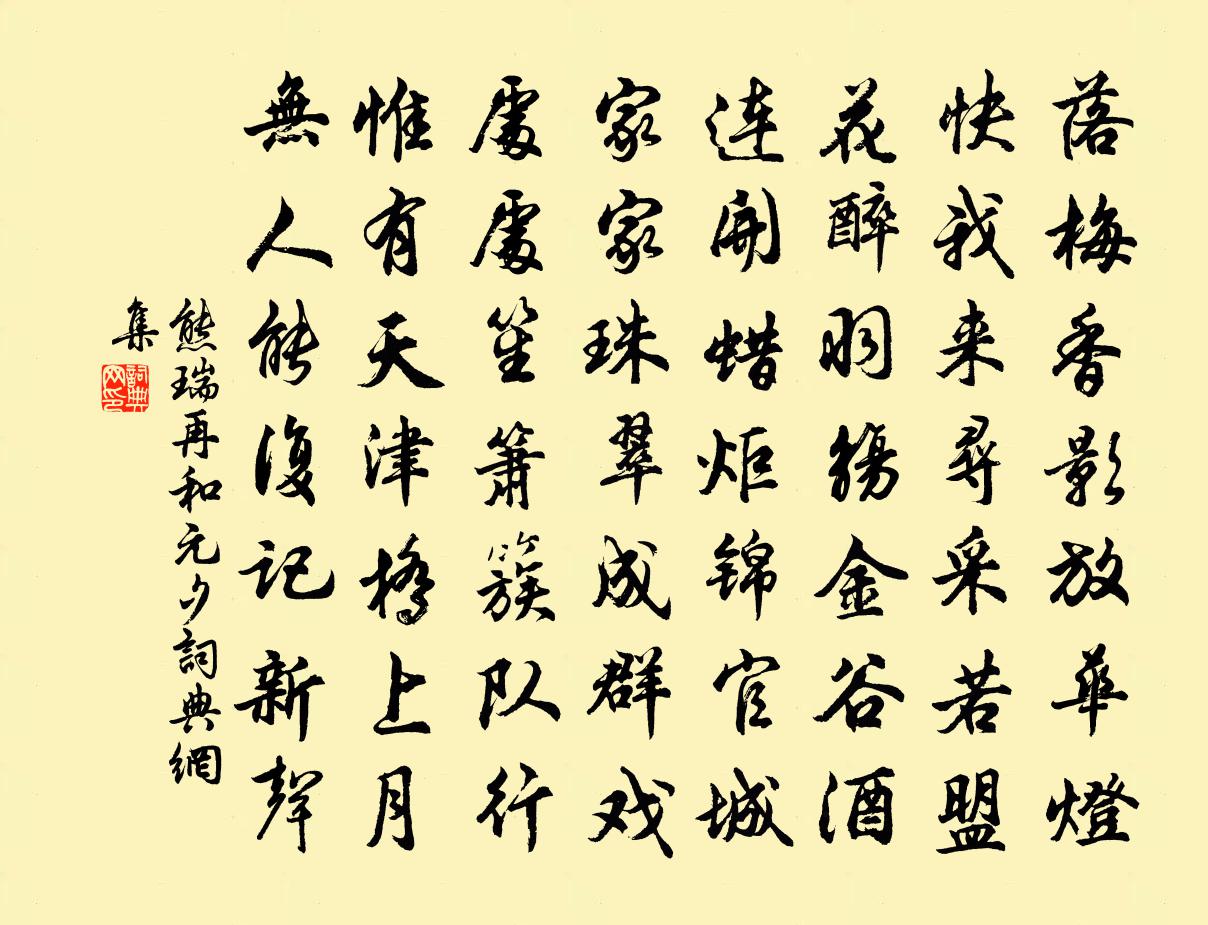 落梅香影放華燈
快我来尋采若盟
花醉羽觴金谷酒
连開蜡炬锦官城
家家珠翠成群戏
處處笙簫簇队行
惟有天津橋上月
無人能復记新聲
熊瑞再和元夕詞典網
集
詞典網印